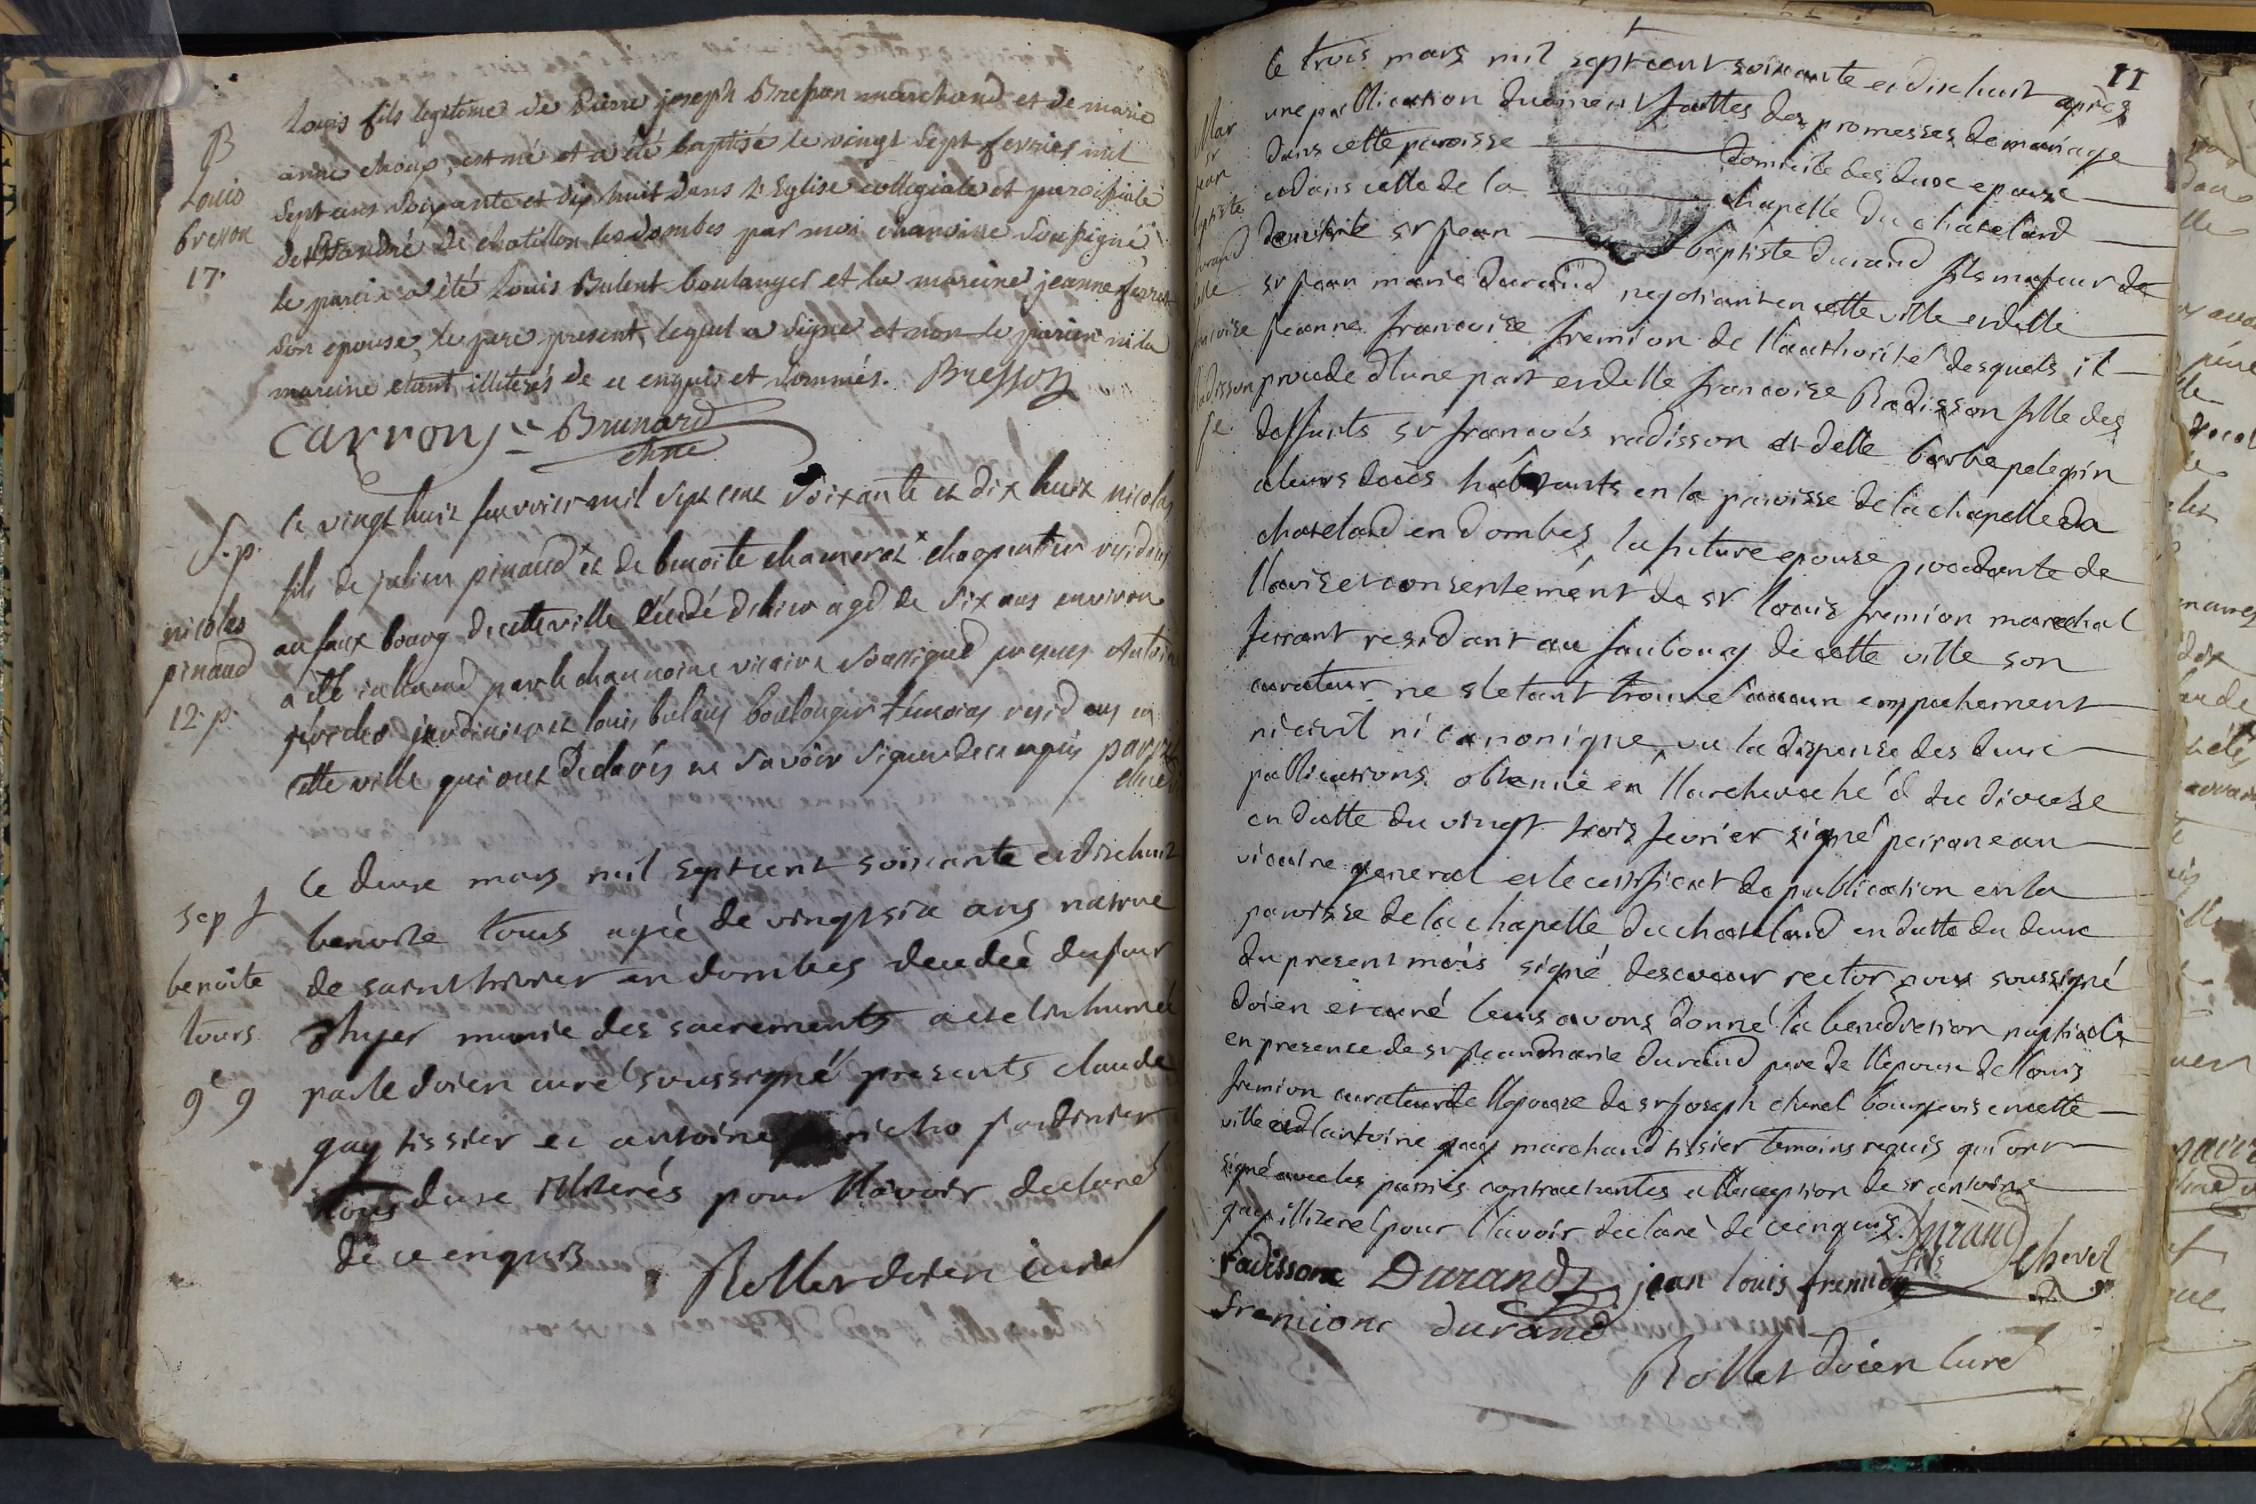 B
Louis
bresson
17.
Louis fils legitime de Pierre joseph Bresson marchand et de marie
anne choux, est né et a été baptisé le vingt sept fevrier mil
sept cens soixante et dix huit dans l'Eglise collegiale et paroissiale
de St André de chatillon les dombes par moi chanoine soussigné,
le parein a été Louis Bulent boulanger et la mareine jeanne
son epouse, le pere present, lequel a signé et non le parein ni la
mareine etant illiterés de ce enquis et sommés. Bresson
Carron Brunard
chne
S. p.
nicolas
pinaud
12. p.
le vingt huit fevrier mil sept cent soixante et dix huit nicolas
fils de julien pinaud et de benoite chameraz charpentier
au faux bourg de cette ville décédé d'hier agé de six ans environ
a été inhumé par le chanoine vicaire soussigné presents Antoine
jericho jardinier et louis bulent boulanger témoins residans en
cette ville qui ont declarés ne savoir signer de ce enquis
sep f
benoite
tours
9e 9
le deuxe mars mil septcent soixante et dixhuit
benoite tours agée de vingtsix ans native
de saint trivier en dombes decedeé du jour
d'hyer munie des sacrements a eté inhumeé
par le doien curé soussigné presents claude
guy tissier et antoine jericho jardinier
tous deuxe illiterés pour l'avoir declaré
de ce enquis
Rollet doien curé
11
Mar
sr
jean
baptiste
durand
delle
francoise
radisson
fe
le trois mars mil septcent soixante et dixhuit après
une publication duement faittes des promesses de mariage
dans cette paroisse domicile des deux epouse
et dans celle de la chapelle du chatelard
sr jean baptiste durand fils majeur de
sr jean marie durand negotiant en cette ville et delle
jeanne francoise fremion de l'authorité desquels il
procede d'une part et delle francoise Radisson fille des
deffunts sr francois radisson et delle barbe pelegrin
a leurs décès habitants en la paroisse de la chapelle du
chatelard en dombes, la future epouse procedante de
l'avis et consentement de sr louis fremion marechal
ferrant residant au faubourg de cette ville son
curateur ne s'etant trouvé aucun empechement
ni civil ni canonique, vu la dispense des deuxe
publications obtenuë en l'archeveché du diocese
en datte du vingt trois fevrier signé
vicaire general et le certificat de publication en la
paroisse de la chapelle du chatelard en datte du deuxe
du present mois signé rector nous soussigné
doien et curé leurs avons donné la benediction nuptiale
en presence de sr jean marie durand pere de l'epoux de louis
fremion curateur de l'epouse de sr joseph bourgeois en cette
ville et d'antoine guy marchand tissier temoins requis qui ont
signé avec les parties contractantes a l'exception de sr antoine
guy illiteré pour l'avoir declaré de ce enquis. Durand
fils
radisson Durand jean louis fremion
fremion durand
Rollet doien curé